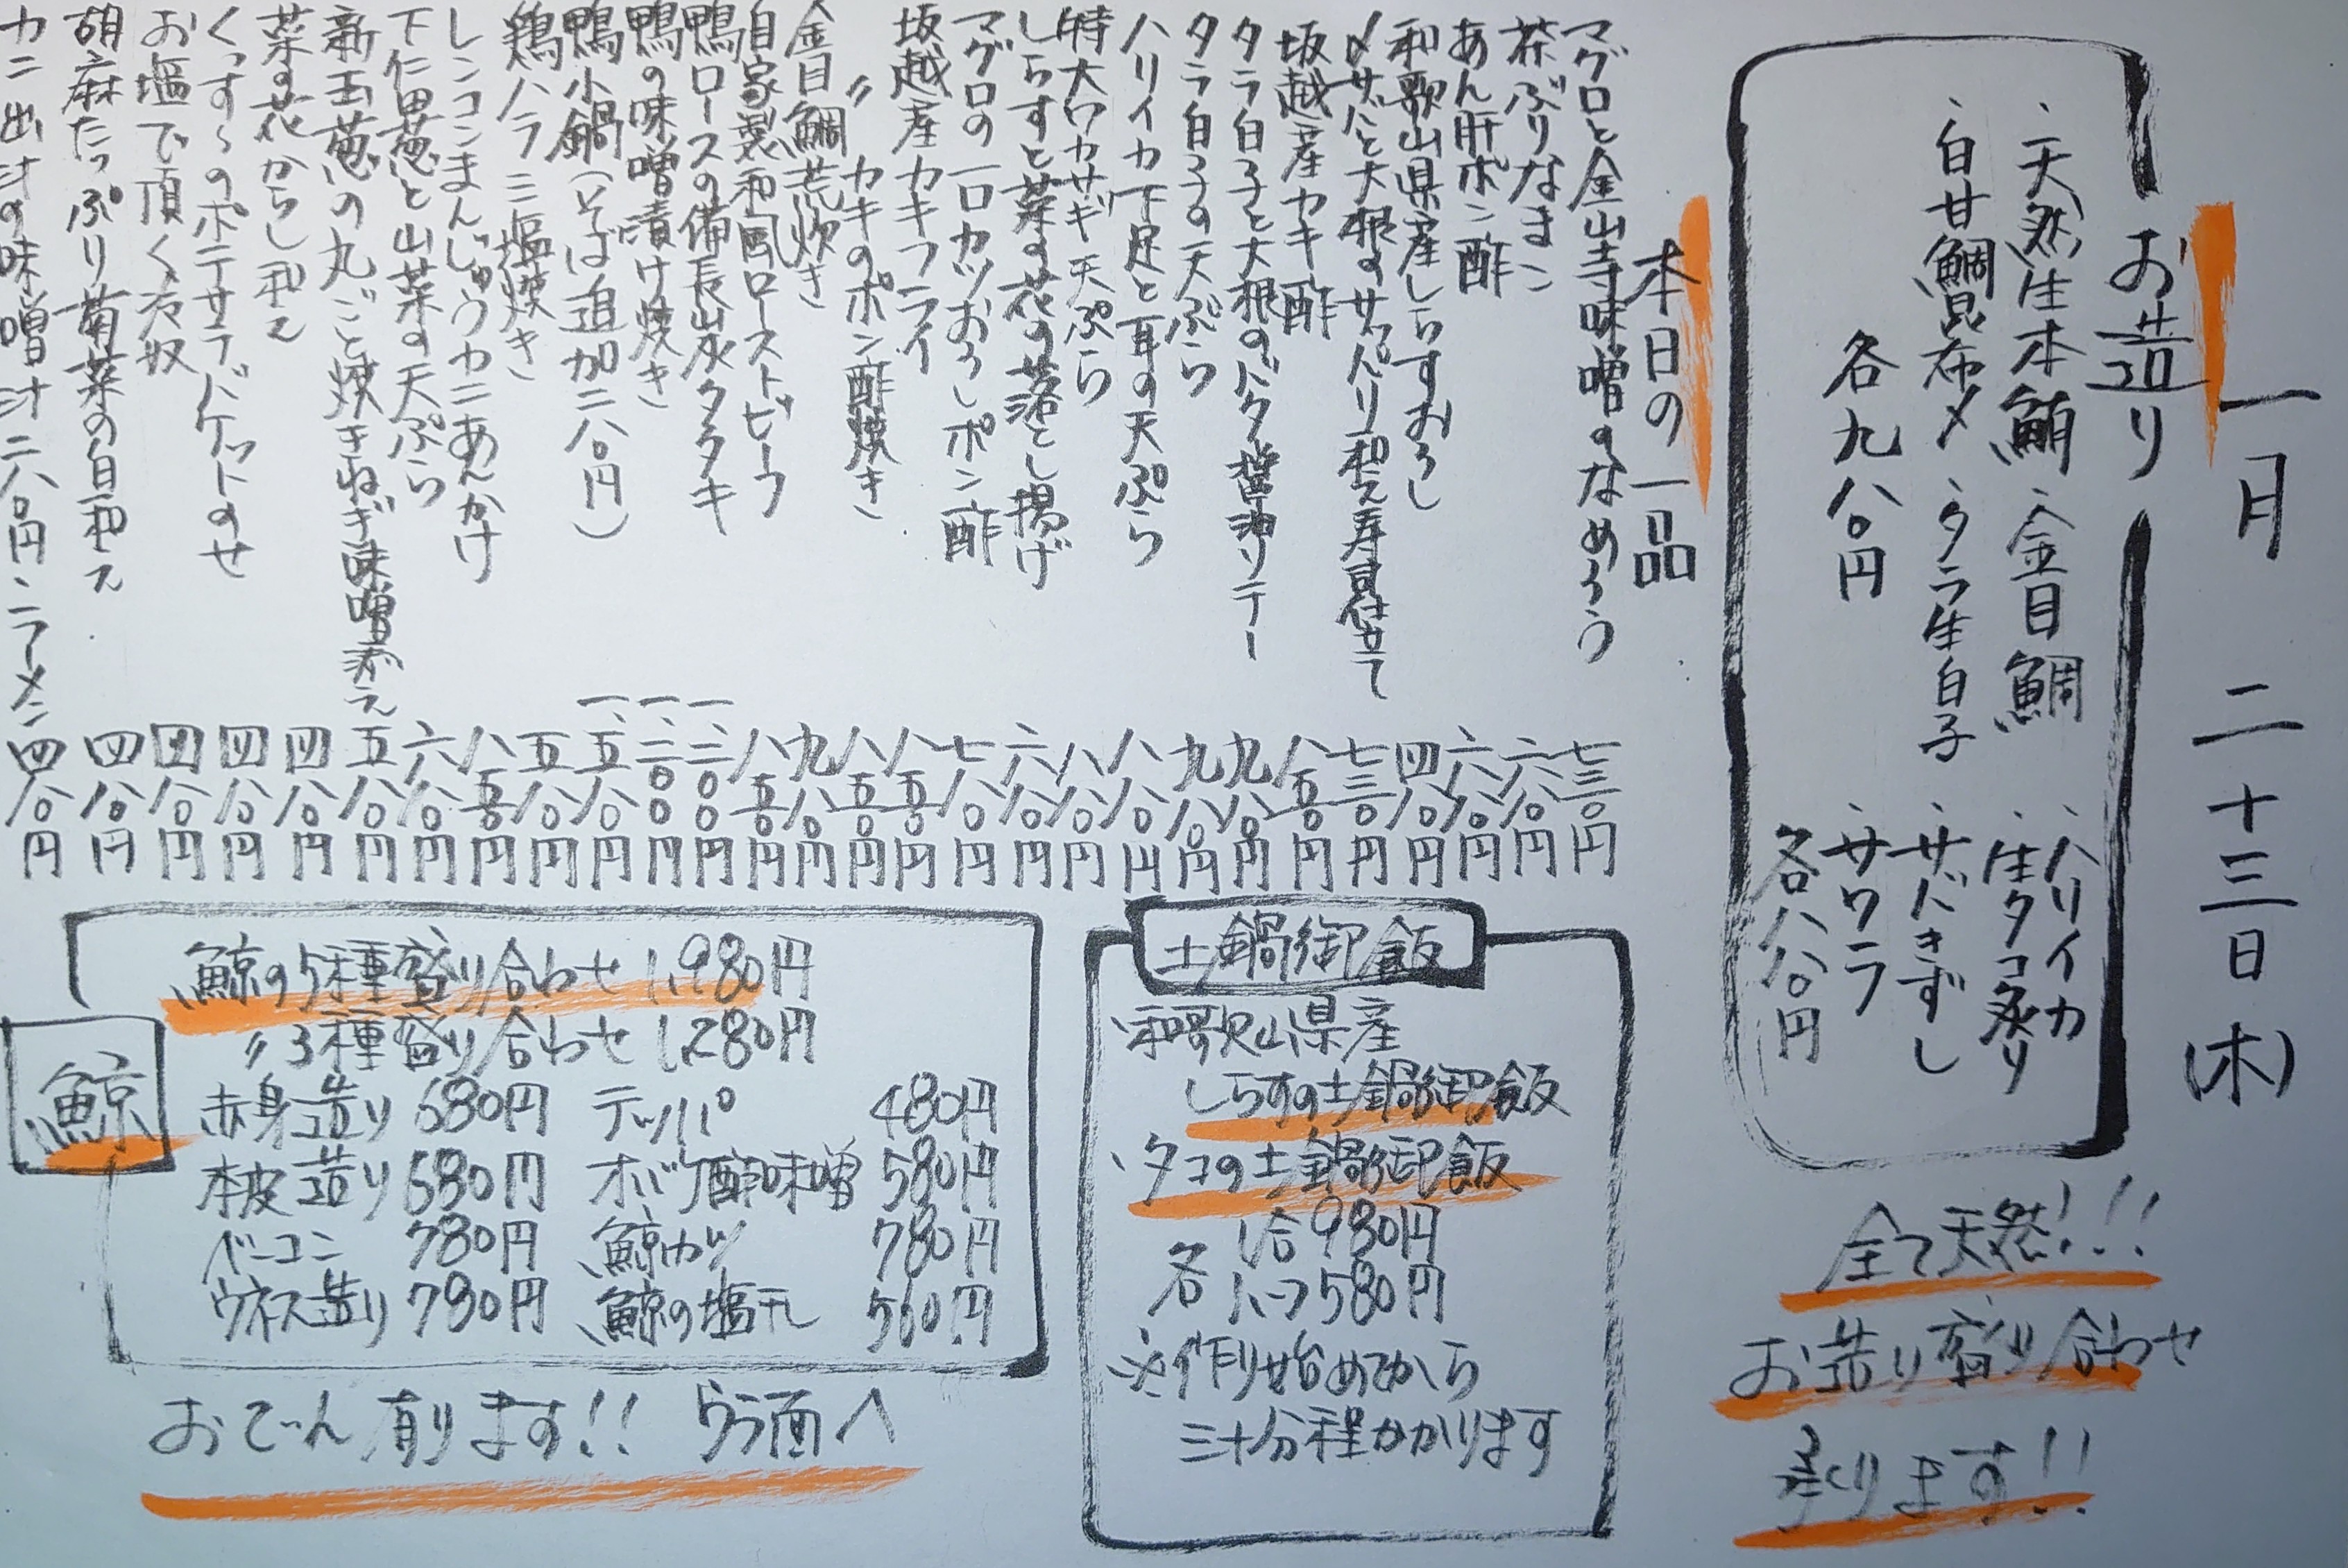 一月 二十三日(木)
お造り
・天然生本鮪 ・金目鯛
・白甘鯛昆布〆 ・タラ生白子
各九八〇円
・ハリイカ
・生タコ炙り
・サバきずし
・サワラ
各八八〇円
全て天然!!!
お造り盛り合わせ
承ります!!
本日の一品
マグロと金山寺味噌のなめろう 七三〇円
茶ぶりなまこ 六八〇円
あん肝ポン酢 六八〇円
和歌山県産しらすおろし 四八〇円
〆サバと大根のサッパリ和え寿司仕立て 七三〇円
坂越産カキ酢 八五〇円
タラ白子と大根のバター醤油ソテー 九八〇円
タラ白子の天ぷら 九八〇円
ハリイカ下足と耳の天ぷら 八八〇円
特大ワカサギ天ぷら 八八〇円
しらすと菜の花の落とし揚げ 六八〇円
マグロの一口カツおろしポン酢 七八〇円
坂越産カキフライ 八五〇円
〃 カキのポン酢焼き 八五〇円
金目鯛荒炊き 九八〇円
自家製和風ローストビーフ 八五〇円
鴨ロースの備長炭タタキ 一、二〇〇円
鴨の味噌漬け焼き 一、二〇〇円
鴨小鍋(そば追加二八〇円) 一、五八〇円
鶏ハラミ塩焼き 五八〇円
レンコンまんじゅうカニあんかけ 八五〇円
下仁田葱と山菜の天ぷら 六八〇円
新玉葱の丸ごと焼きねぎ味噌添え 五八〇円
菜の花からし和え 四八〇円
くっすのポテサラバケットのせ 四八〇円
お塩で頂く冷奴 四八〇円
胡麻たっぷり菊菜の白和え 四八〇円
カニ出汁の味噌汁二八〇円・ラーメン 四八〇円
土鍋御飯
・和歌山県産
しらすの土鍋御飯
・タコの土鍋御飯
各 1合980円
1/2つ580円
※作り始めてから
三十分程かかります
鯨
鯨の5種盛り合わせ 1,980円
〃3種盛り合わせ 1,280円
赤身造り 680円 テッパ° 480円
本皮造り 680円 オバケ酢味噌 580円
ベーコン 780円 鯨カツ 780円
ウネス造り 780円 鯨の塩干し 560円
おでん有ります!! ウラ面へ